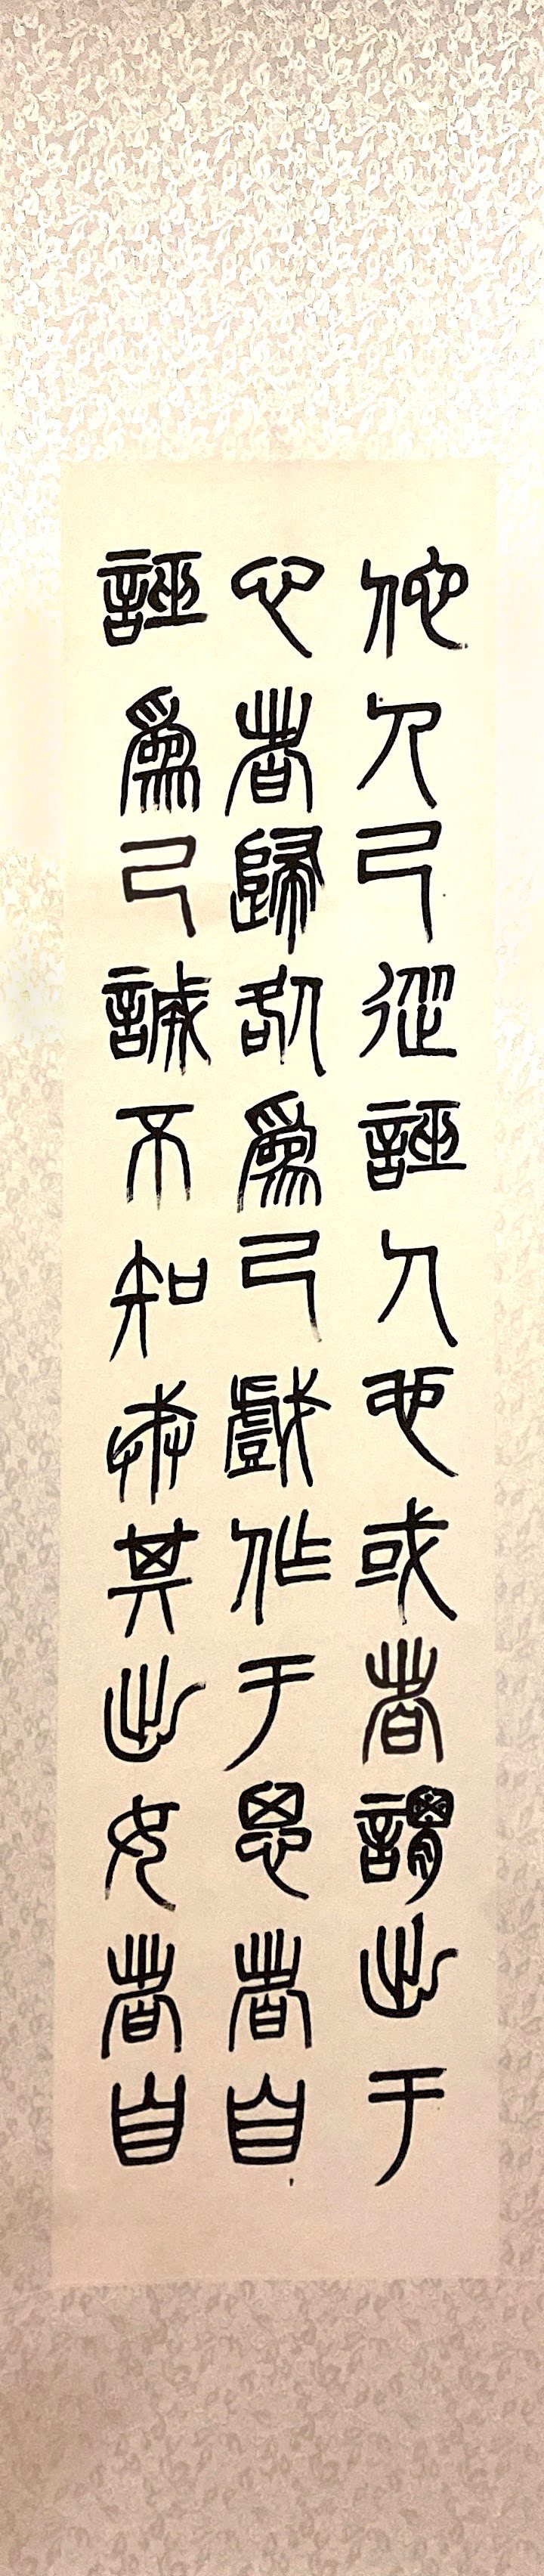 他人己從誣人也或者謂出于
心者歸咎爲己戲作于思者自
誣爲己誠不知戒其出女者自